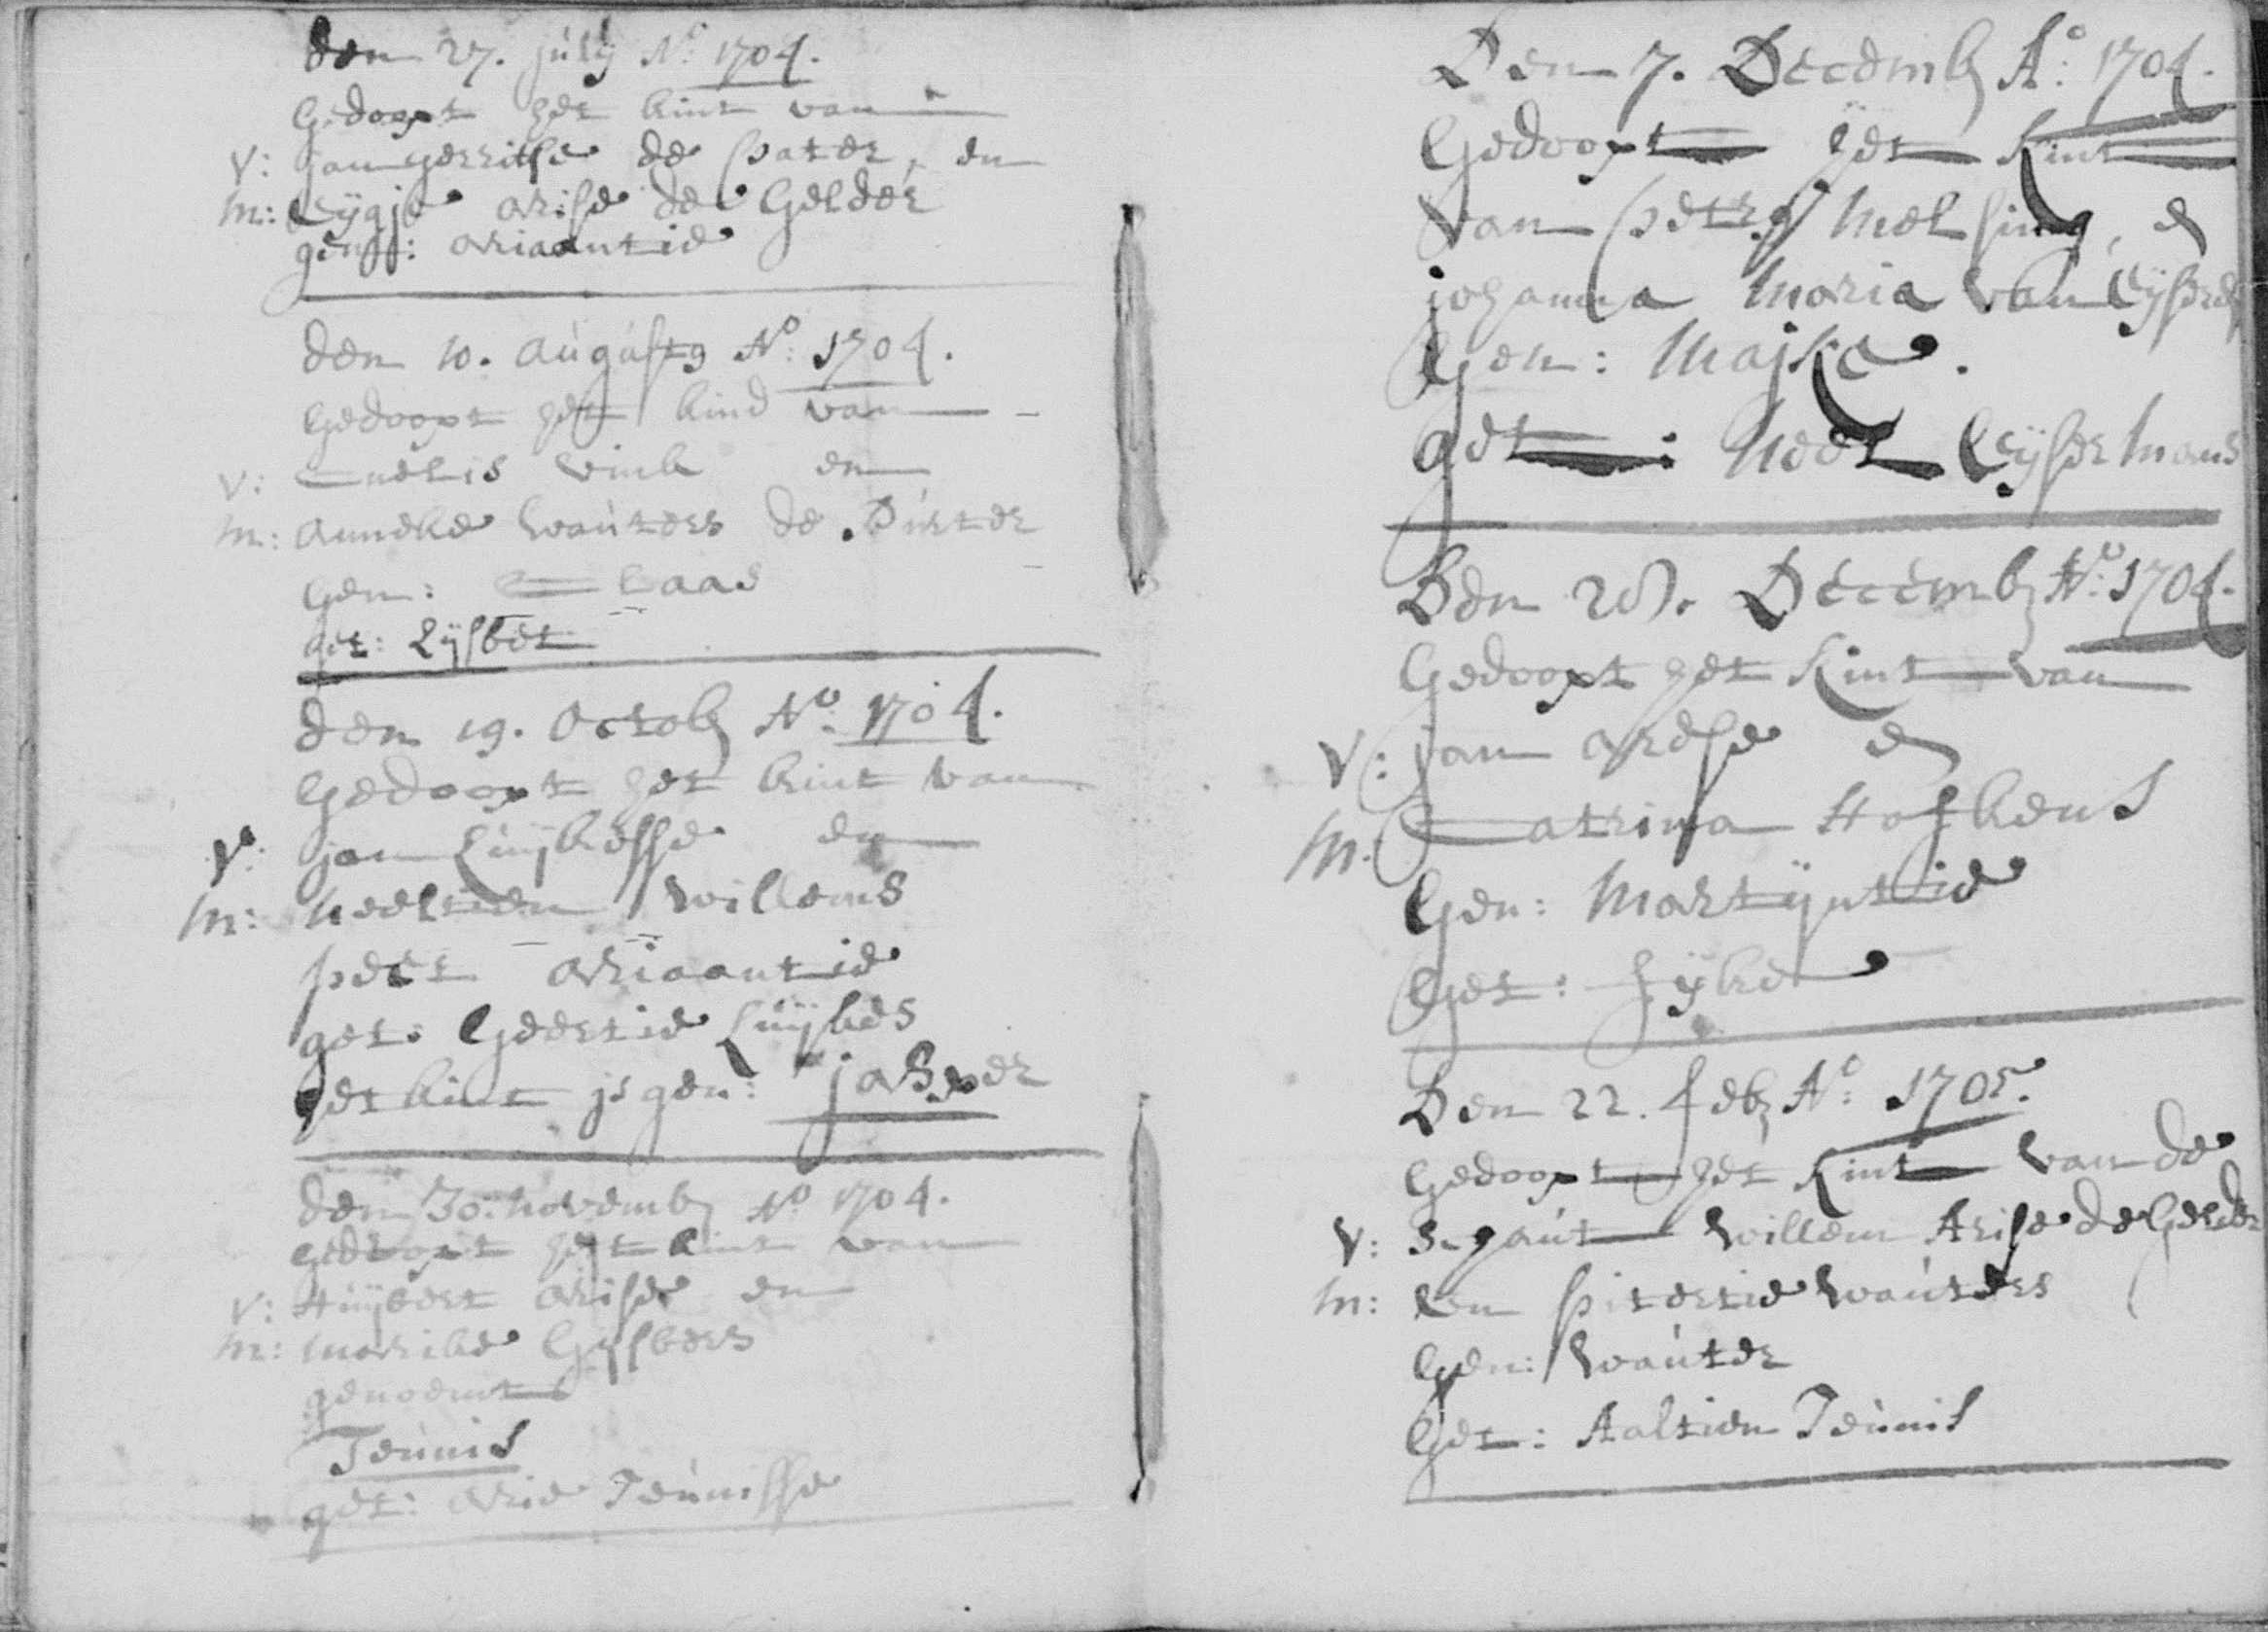 den 27. júlij Aº 1704.
Gedoopt het kint van
V: jan gerritse de pater, en
M: Eijgje arise de Gelder
gen: Ariaantie
den 10. aúgústg Aº: 1704.
Gedoopt het kind van
V: Cnelis vink en
M: Anneke Waúters de Dúster
Gen: Claas
get: Lijsbet
den 19. Octob Aº: 1704.
Gedoopt het kint van
V: jan Lúijkesse en
M: Neeltien Willems
peet Ariaantie
get: Geertie Lúijkes
het kint is gen: jasper
den 30. Novemb Aº 1704.
Gedoopt het kint van
V: Húijbert Arise en
M: Marike Gijsbers
genoemt
Teúnis
get: Arie Teúnisse
Den 7. Decemb Aº: 1704.
Gedoopt het Kint
Van Peter Melsing, e
johanna Maria van
Gen: Majke.
get: Neel Leijsermans
Den 28. Decemb Aº: 1704.
Gedoopt het Kint van
V: jan Arese e
M. Catrina Hofkens
Gen: Martijntie
Get: Fijke
Den 22. feb Aº: 1705.
Gedoopt het Kint van de
V: Schaút Willem Arise de Gelder
M: en Pitertie Waúters
Gen: Waúter
Get: Aaltien Teúnis